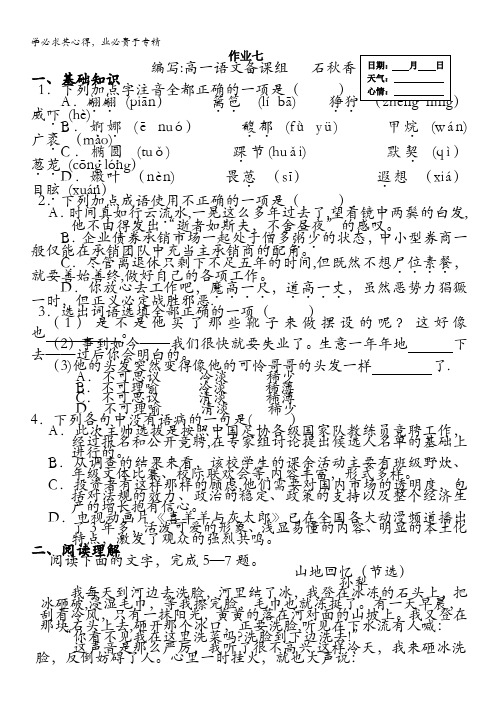 学必求其心得，业必贵于专精
作业七
编写:高一语文备课组　石秋香
日期：　　月　　日
天气：
心情：
一、基础知识
1．下列加点字注音全都正确的一项是（　　）
A．翩翩 (piān)　　篱笆　(lí bā)　　狰狞　(zhēng níng)
威吓 (hè)
B．婀娜　(ē　nuó)　　馥郁　(fù　yù)　　甲烷　(wán)
广袤　(mào)
C．椭圆　(tuǒ)　　踝节 (huái)　　默契　(qì)
葱茏 (cōng lóng)
D．嫩叶　(nèn)　　畏葸　(sī)　　遐想　(xiá)
目眩　(xuán)
2．下列加点成语使用不正确的一项是（　　）
A．时间真如行云流水,一晃这么多年过去了,望着镜中两鬓的白发,
他不由得发出“逝者如斯夫，不舍昼夜”的感叹。
B．企业债券承销市场一起处于僧多粥少的状态，中小型券商一
般仅能在承销团队中充当主承销商的配角。
C．尽管离退休只剩下不足五年的时间,但既然不想尸位素餐，
就要善始善终,做好自己的各项工作。
D．你放心去工作吧，魔高一尺，道高一丈，虽然恶势力猖獗
一时，但正义必定战胜邪恶.
3．选出词语选填全部正确的一项（　　）
（1）是不是他买了那些靴子来做摆设的呢？这好像
也　　　　。
（2）事到如今——我们很快就要失业了。生意一年年地　　　下
去——过后你会明白的。
(3)他的头发突然变得像他的可怜哥哥的头发一样　　　　了.
A．不可思议　　冷淡　　稀少
B．不可理喻　　冷淡　　稀薄
C．不可思议　　清淡　　稀薄
D．不可理喻　　清淡　　稀少
4．下列各句中没有语病的一句是(　　)
A．此次主帅选拔是按照中国足协各级国家队教练员竞聘工作，
经过报名和公开竞聘,在专家组讨论提出候选人名单的基础上
进行的。
B．从调查的结果来看，该校学生的课余活动主要有班级野炊、
年级文体比赛、校际联欢会等,内容丰富，形式多样。
C．投资者有这样那样的顾虑,他们需要对国内市场的透明度，包
括对法规的效力、政治的稳定、政策的支持以及整个经济生
产的增长抱有信心。
D．电视动画片《喜羊羊与灰太郎》已在全国各大动漫频道播出
了3年多，活泼可爱的形象、浅显易懂的内容、明显的本土化
特点，激发了观众的强烈共鸣。
二、阅读理解
阅读下面的文字，完成5—7题。
山地回忆（节选）
孙犁
我每天到河边去洗脸，河里结了冰，我登在冰冻的石头上，把
冰砸破,浸湿毛巾，等我擦完脸，毛巾也就冻挺了。有一天早晨，
刮着冷风，只有一抹阳光，黄黄的落在河对面的山坡上。我又登在
那块石头上去,砸开那个冰口，正要洗脸,听见在下水流有人喊：
“你看不见我在这里洗菜吗?洗脸到下边洗去!”
这声音是那么严厉，我听了很不高兴.这样冷天，我来砸冰洗
脸，反倒妨碍了人。心里一时挂火，就也大声说：